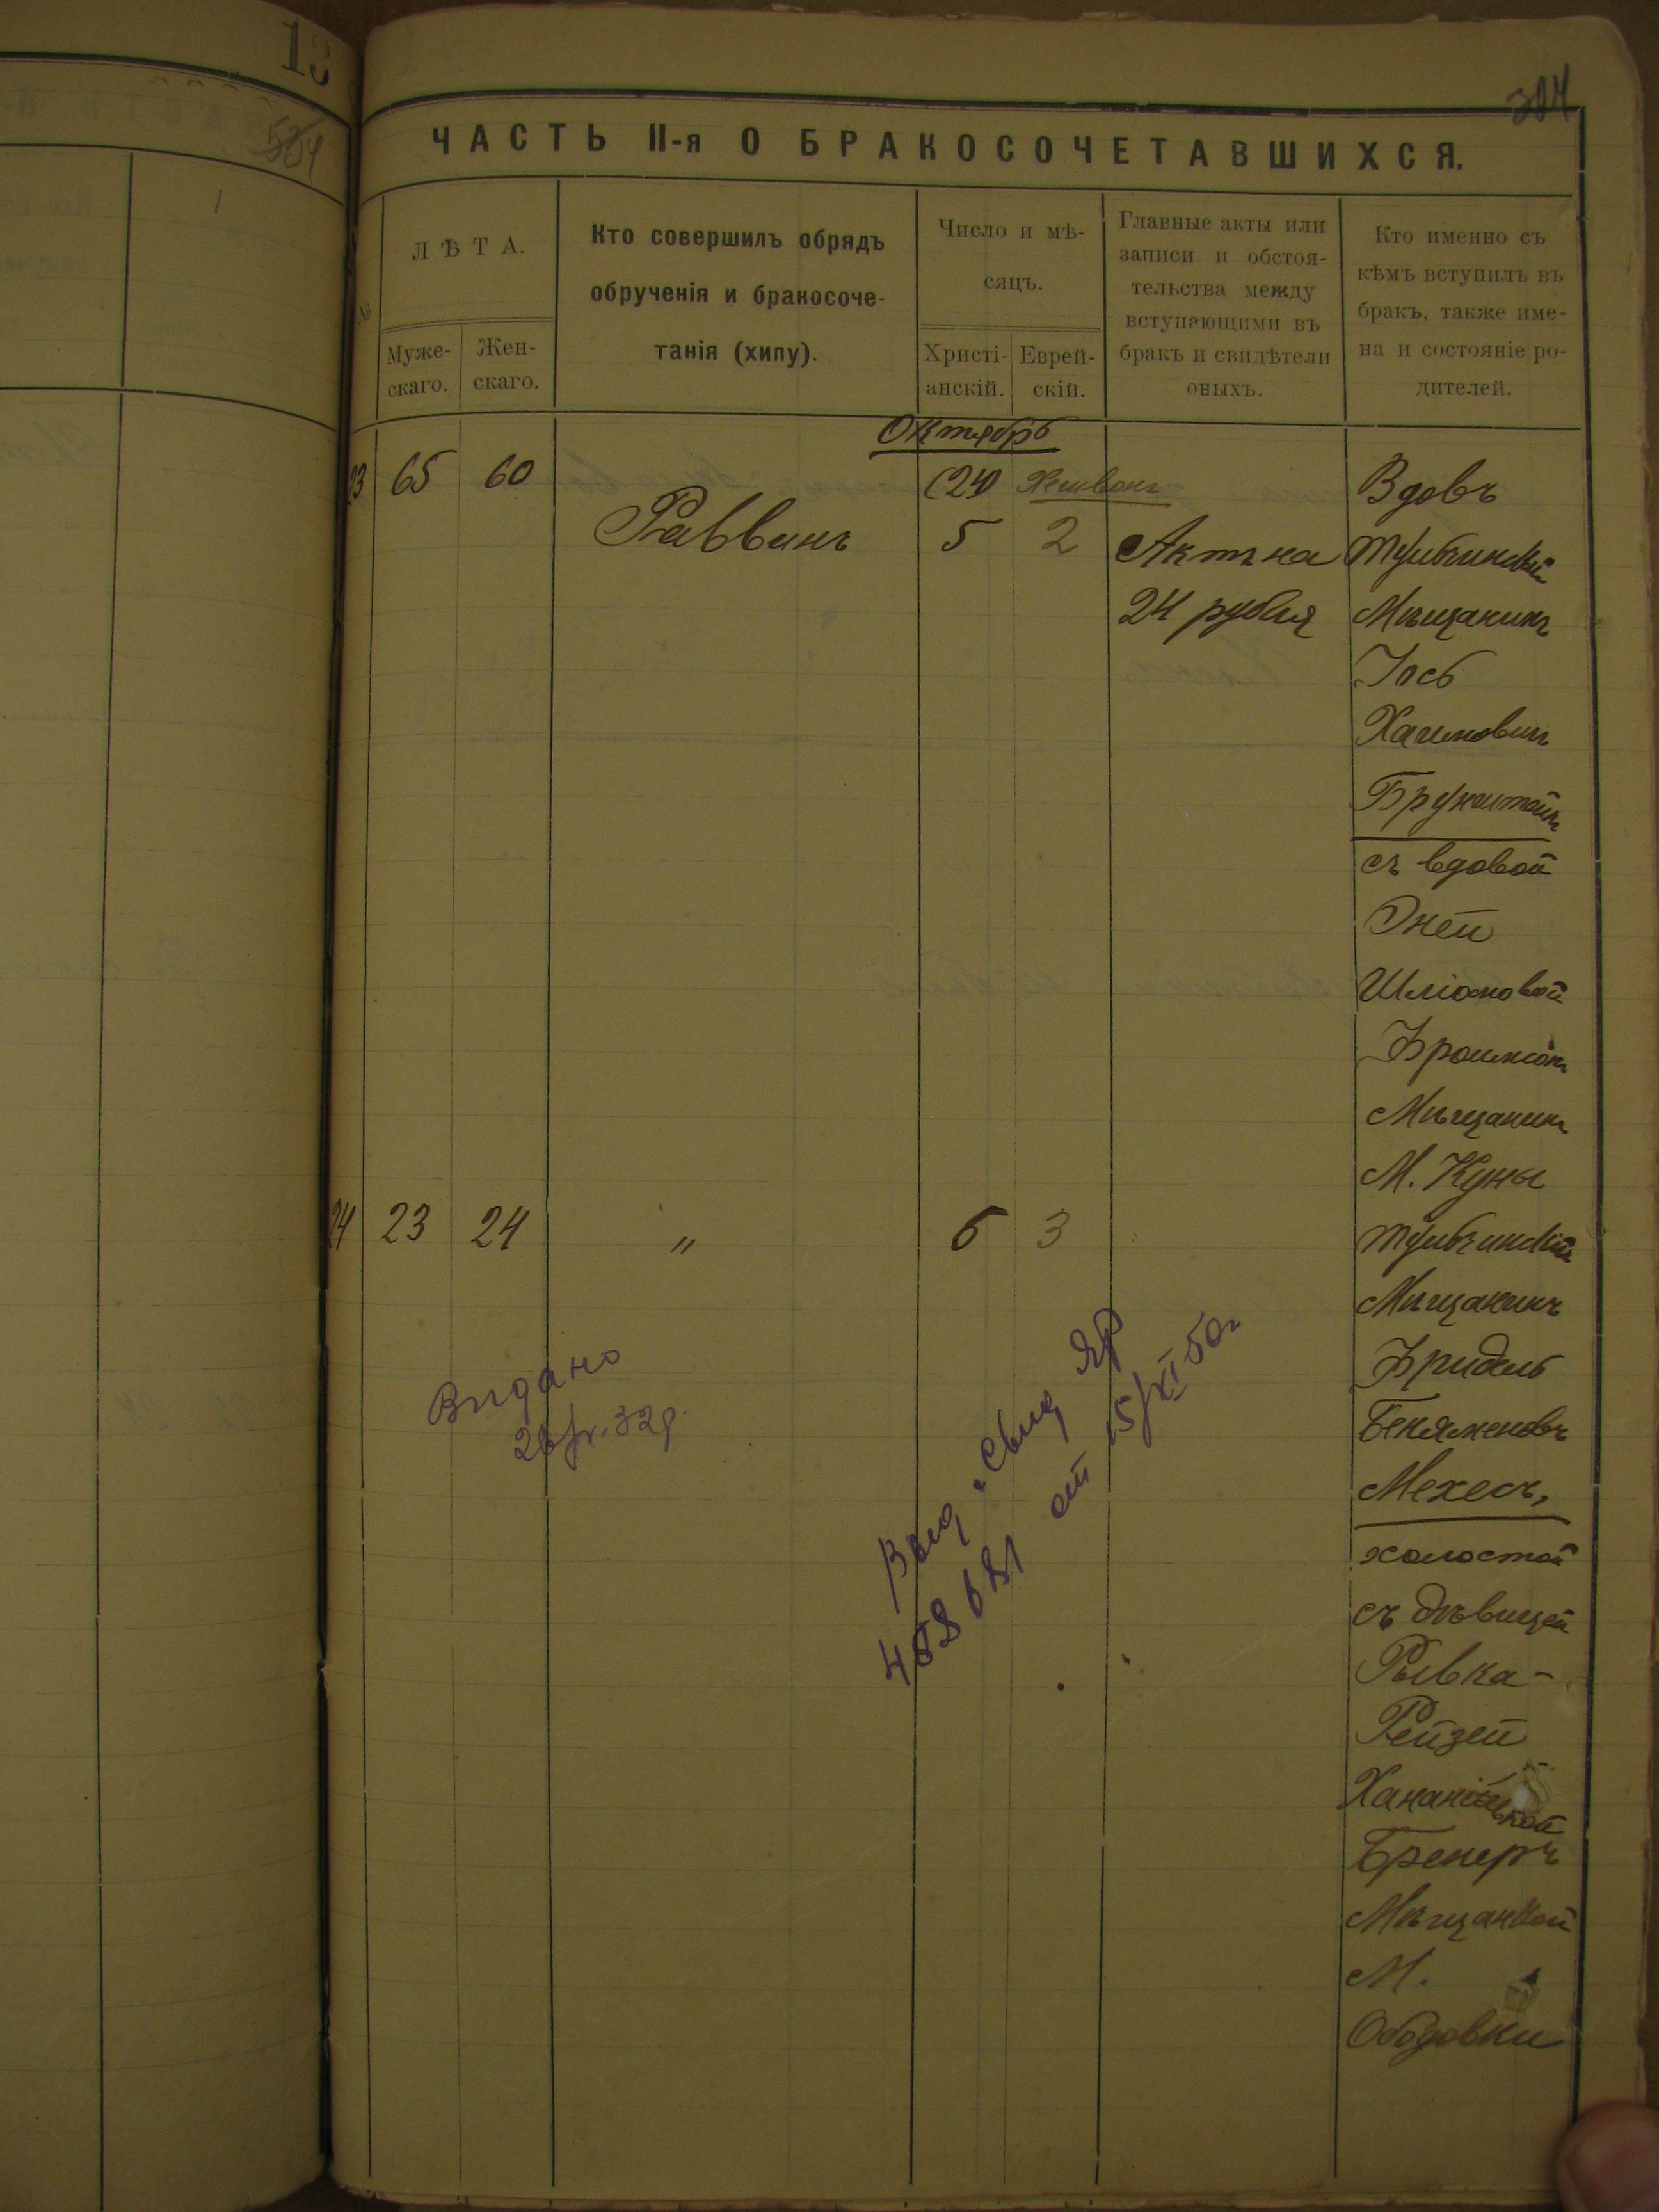 13
534
304
ЧАСТЬ II-я О БРАКОСОЧЕТАВШИХСЯ.
№
ЛѢТА.
Муже-
скаго.
Жен-
скаго.
Кто совершилъ обрядъ
обрученія и бракосоче-
танія (хипу).
Число и мѣ-
сяцъ.
Христі-
анскій.
Еврей-
скій.
Главные акты или
записи и обстоя-
тельства между
вступающими въ
бракъ и свидѣтели
оныхъ.
Кто именно съ
кѣмъ вступилъ въ
бракъ, также име-
на и состояніе ро-
дителей.
Октябрь
23 65 60 (24) Хешвонъ
Раввинъ 5 2
Актъ на
24 рубля
Вдовъ
Тульчинскій
Мѣщанинъ
Іось
Хаимовичъ
Брунштейнъ
съ вдовой
Эней
Шліомовой
Фроимсонъ
Мѣщанинъ
М. Куны
24 23 24 " 6 3
Тульчинскій
Мѣщанинъ
Фридель
Беняменовъ
Мехесъ,
холостой
съ дѣвицей
Рывка-
Рейзей
Бренеръ
Мѣщанкой
М.
Ободовки
Видано
Выд. свид ЯР
488681 от 15/XI 50г